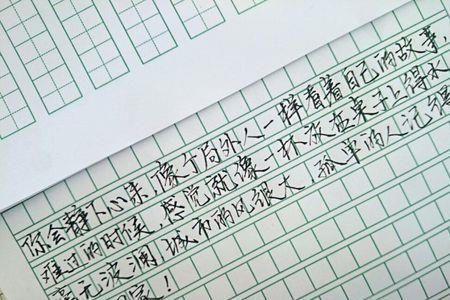 你会静下心来,像个局外人一样看着自己的故事,
难过的时候,感觉就像一杯放在桌子上得水
毫无波澜,城市的风很大,孤单的人记得
回家!